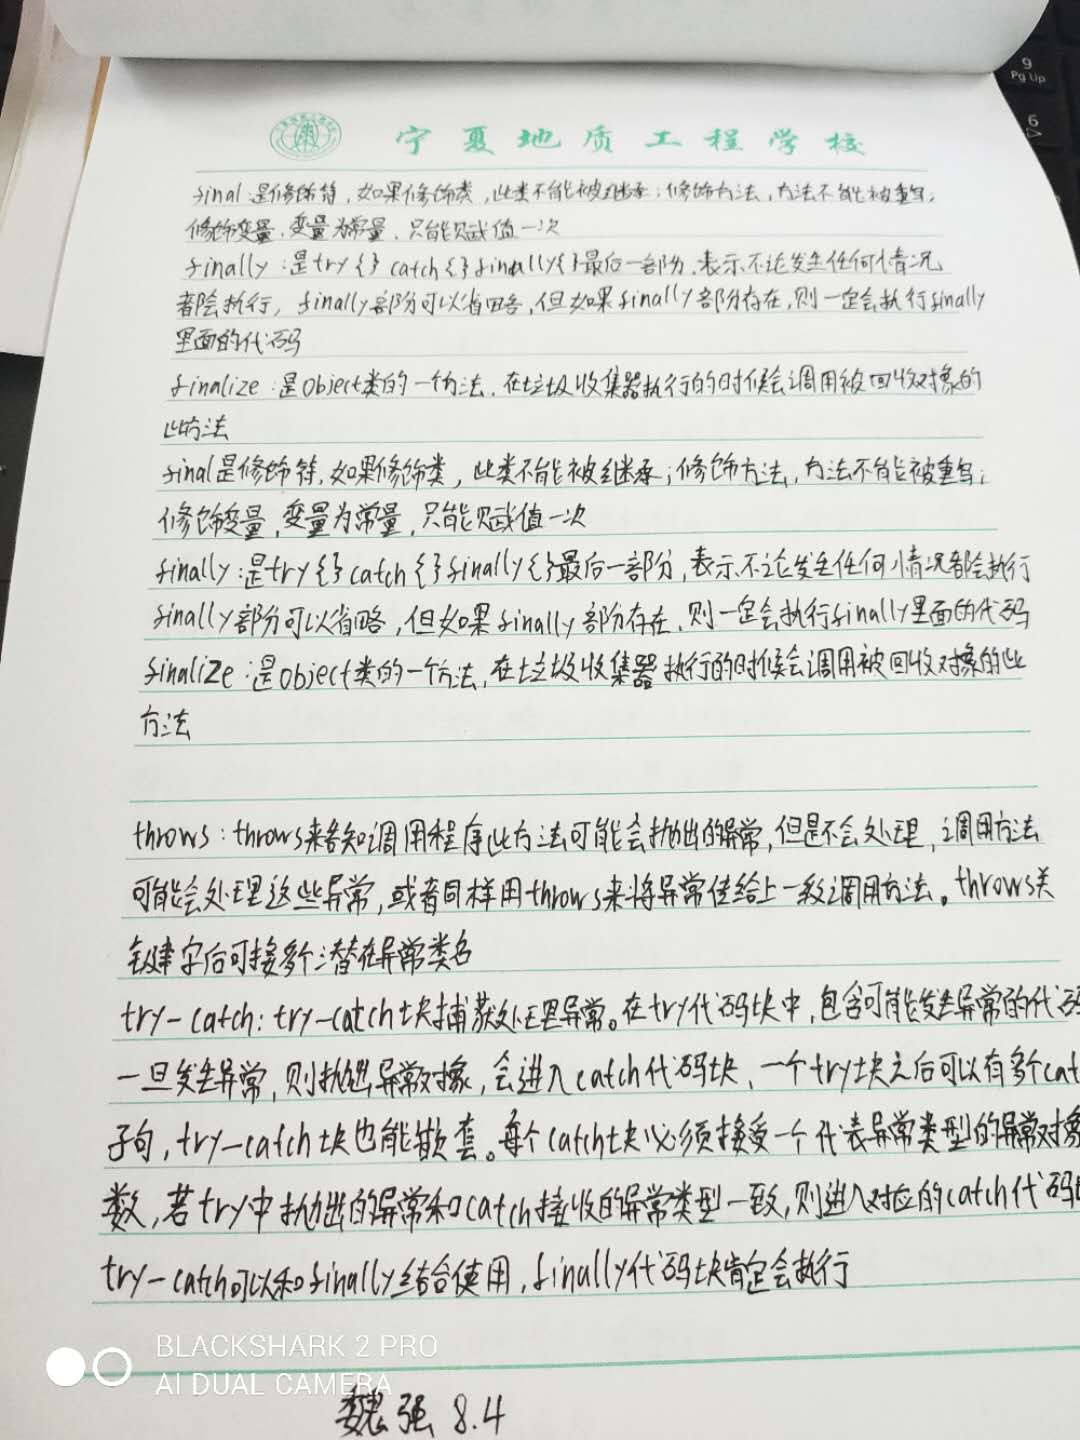 9
Pg Up
6
宁夏地质工程学校
final:是修饰符,如果修饰类,此类不能被继承;修饰方法,方法不能被重写;
修饰变量,变量为常量,只能赋值一次
finally:是try{}catch{}finally{}最后一部分,表示不论发生任何情况
都会执行,finally部分可以省略,但如果finally部分存在,则一定会执行finally
里面的代码
finalize:是Object类的一个方法,在垃圾收集器执行的时候会调用被回收对象的
此方法
final是修饰符,如果修饰类,此类不能被继承;修饰方法,方法不能被重写;
修饰变量,变量为常量,只能赋值一次
finally:是try{}catch{}finally{}最后一部分,表示不论发生任何情况都会执行
finally部分可以省略,但如果finally部分存在,则一定会执行finally里面的代码
finalize:是Object类的一个方法,在垃圾收集器执行的时候会调用被回收对象的此
方法
throws:throws来告知调用程序此方法可能会抛出的异常,但是不会处理,调用方法
可能会处理这些异常,或者同样用throws来将异常传给上一级调用方法。throws关
键字后可接多个潜在异常类名
try-catch:try-catch块捕获处理异常。在try代码块中,包含可能发生异常的代码
一旦发生异常,则抛出异常对象,会进入catch代码块,一个try块之后可以有多个cat
子句,try-catch块也能嵌套。每个catch块必须接受一个代表异常类型的异常对象
数,若try中抛出的异常和catch接收的异常类型一致,则进入对应的catch代码
try-catch可以和finally结合使用,finally代码块肯定会执行
BLACKSHARK 2 PRO
AI DUAL CAMERA
魏强 8.4